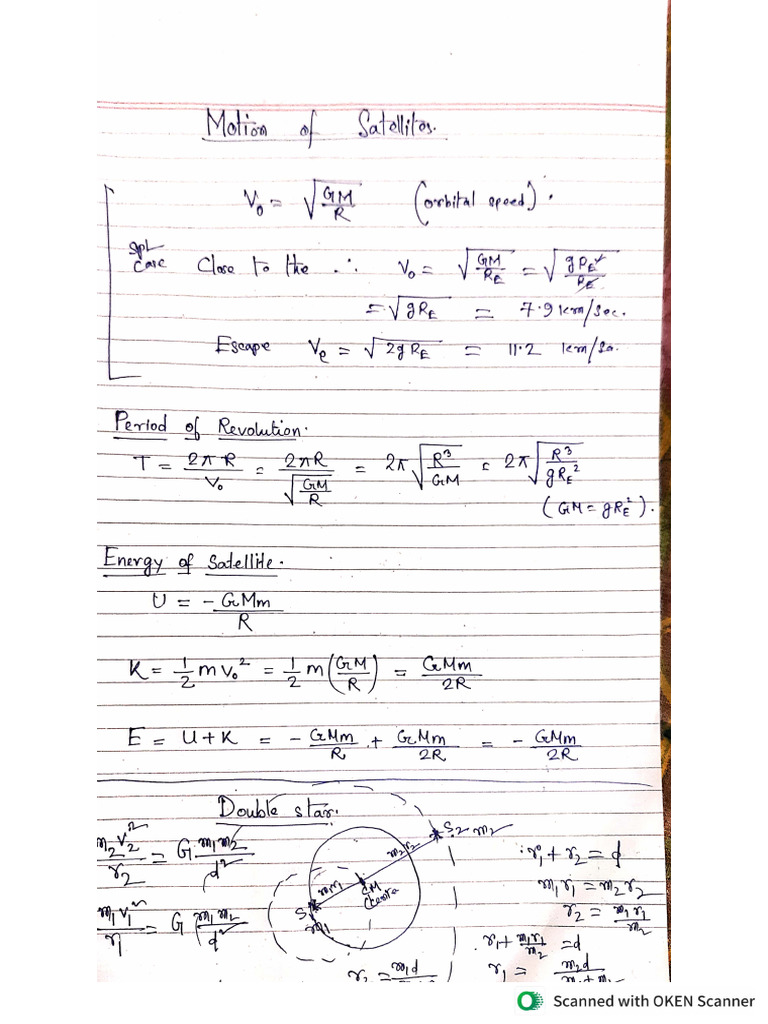 Motion of Satellites.
V₀ = √(GM/R) (orbital speed).
Spl Case Close to the ∴ V₀ = √(GM/R_E) = √(gR_E²/R_E)
= √(gR_E) = 7.9 km/sec.
Escape V_e = √(2gR_E) = 11.2 km/s
Period of Revolution.
T = 2πR/V₀ = 2πR/√(GM/R) = 2π√(R³/GM) = 2π√(R³/gR_E²)
(GM = gR_E²).
Energy of Satellite.
U = -GMm/R
K = 1/2 mv₀² = 1/2 m(GM/R) = GMm/2R
E = U + K = -GMm/R + GMm/2R = -GMm/2R
Double star.
m₂v₂²/r₂ = G m₁m₂/d²
m₁v₁²/r₁ = G m₁m₂/d²
S₂ m₂
m₂r₂
m₁r₁
CM
S₁
m₁
r₁ + r₂ = d
m₁r₁ = m₂r₂
r₂ = m₁r₁/m₂
r₁ + m₁r₁/m₂ = d
r₂ = m₁d
r₁ = m₂d/m₁+m₂
Scanned with OKEN Scanner